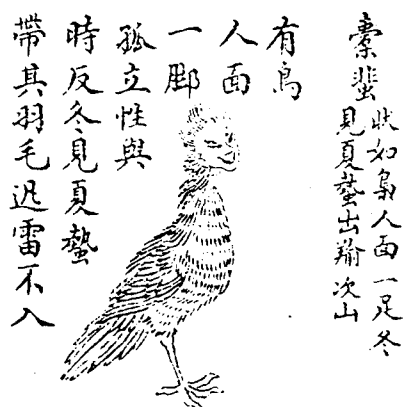 橐蜚
狀如梟人面一足冬
見夏蟄出羭次山
有鳥
人面
一脚
孤立性與
時反冬見夏蟄
帶其羽毛迅雷不入